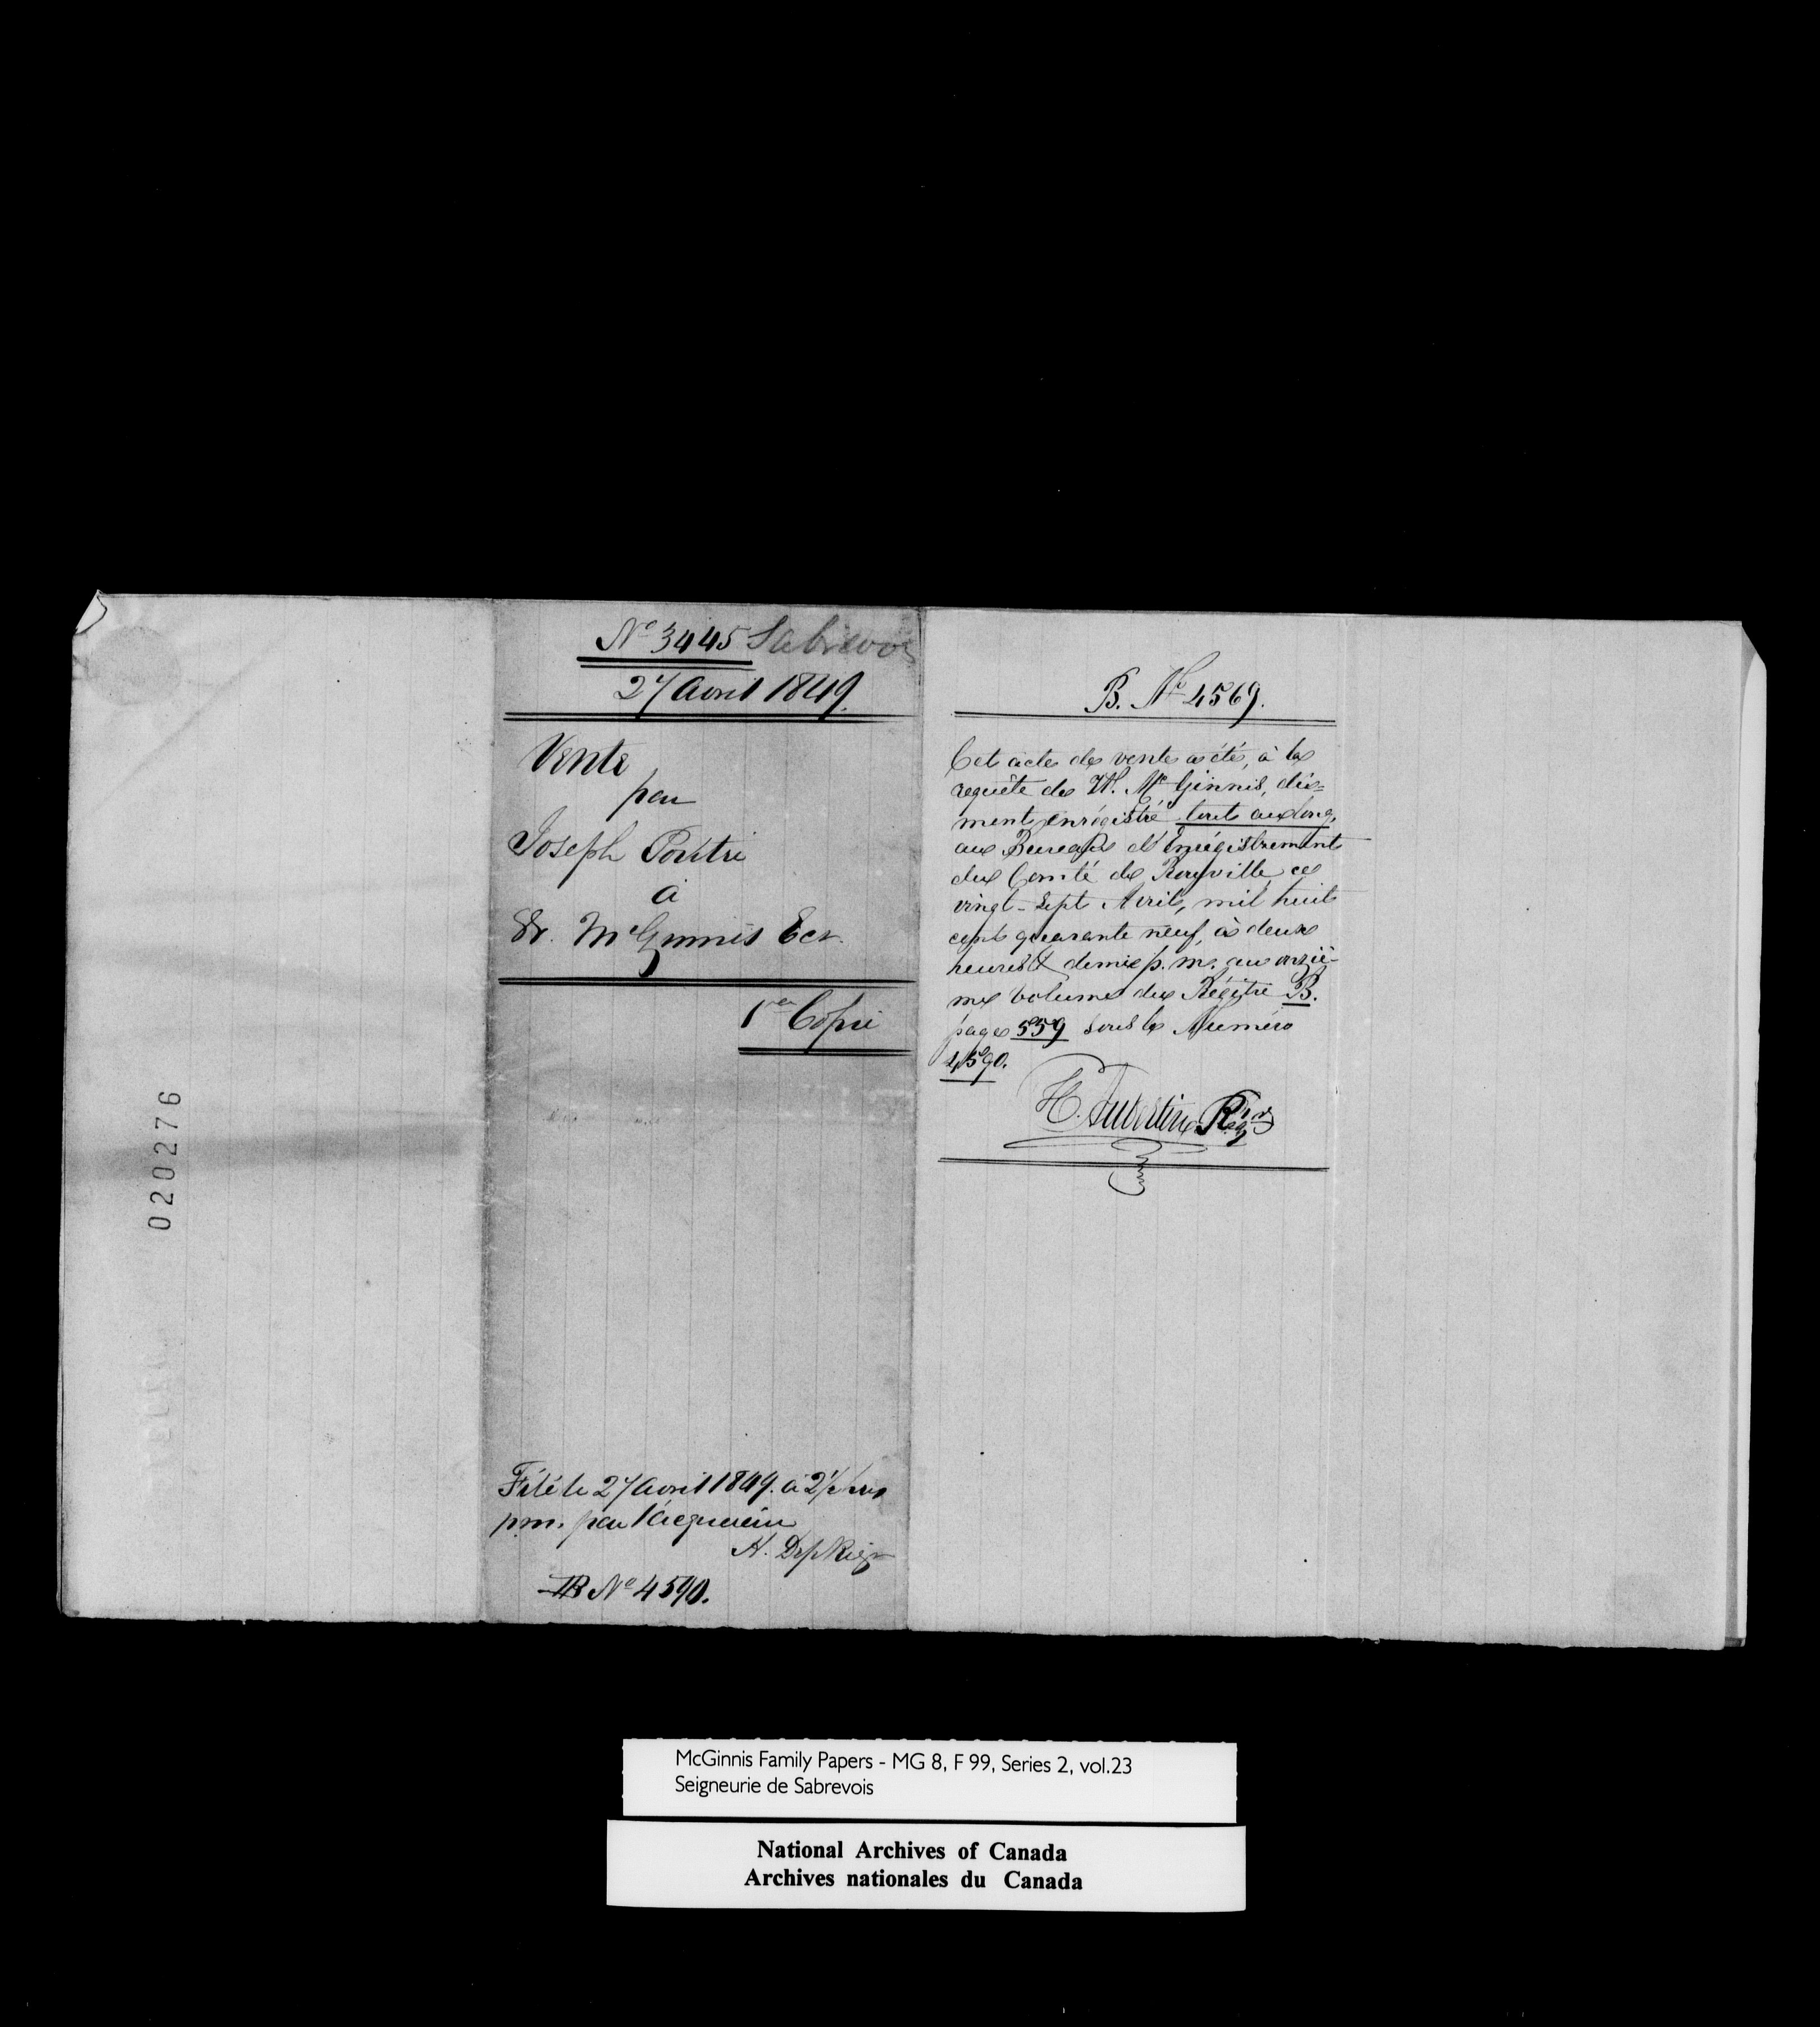 020276
No 3445 Sabrevois
27 Avril 1849.
Vente
par
Joseph Poutré
à
Wm. McGinnis Ecr.
1ère Copie
Filé le 27 Avril 1849. à 2½ hrs
p.m. par l'acquéreur
H. Dep Reg
B No 4590.
B. No 4569.
Cet acte de vente a été, à la
requête de W. McGinnis, dûe=
ment enrégistré tout au long,
au Bureau d'Enrégistrement
du Comté de Rouville, ce
vingt-sept Avril, mil huit
cent quarante neuf, à deux
heures & demie p.m. au onziè-
me volume du Régître B.
page 559 sous le Numéro
4590.
H. Aubertin Regr
McGinnis Family Papers - MG 8, F 99, Series 2, vol.23
Seigneurie de Sabrevois
National Archives of Canada
Archives nationales du Canada